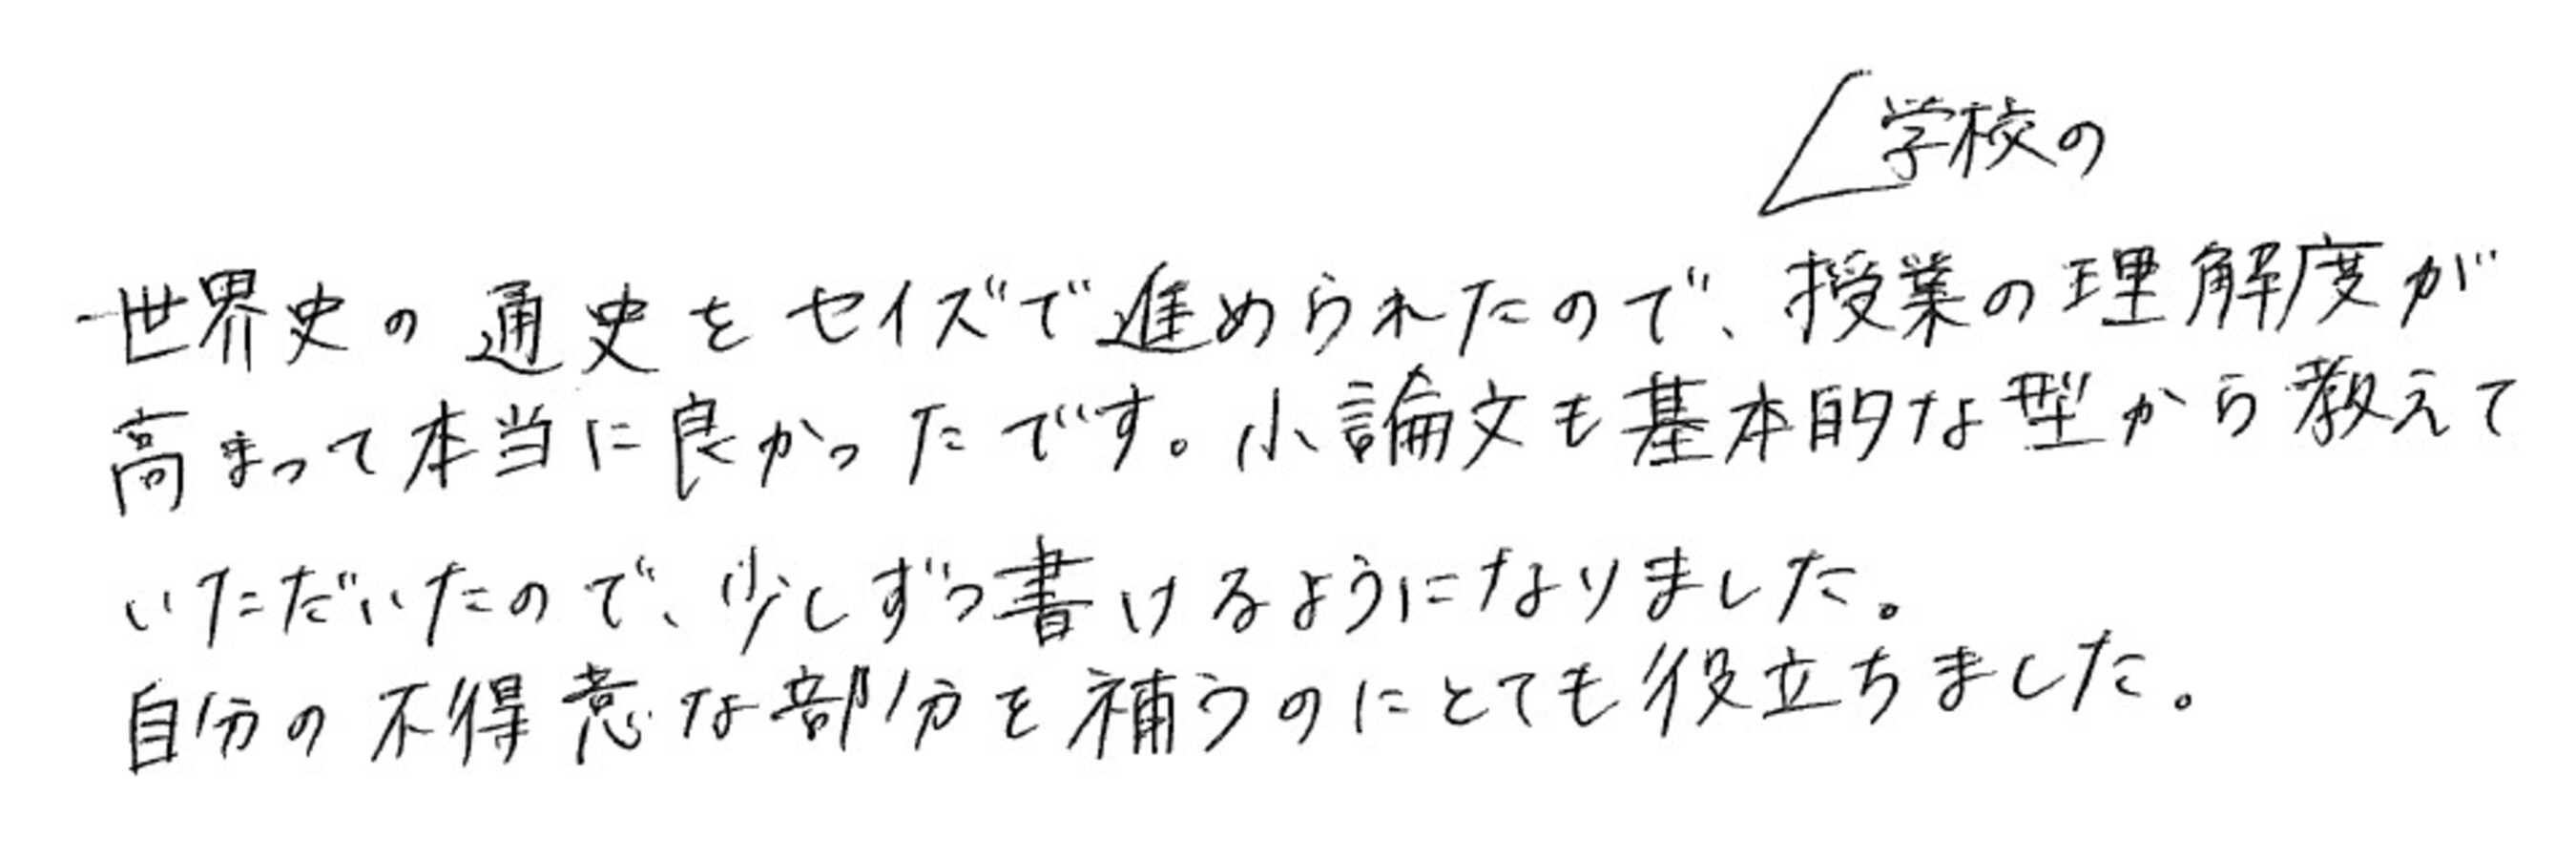 学校の
世界史の通史をセイズで進められたので、授業の理解度が
高まって本当に良かったです。小論文も基本的な型から教えて
いただいたので、少しずつ書けるようになりました。
自分の不得意な部分を補うのにとても役立ちました。